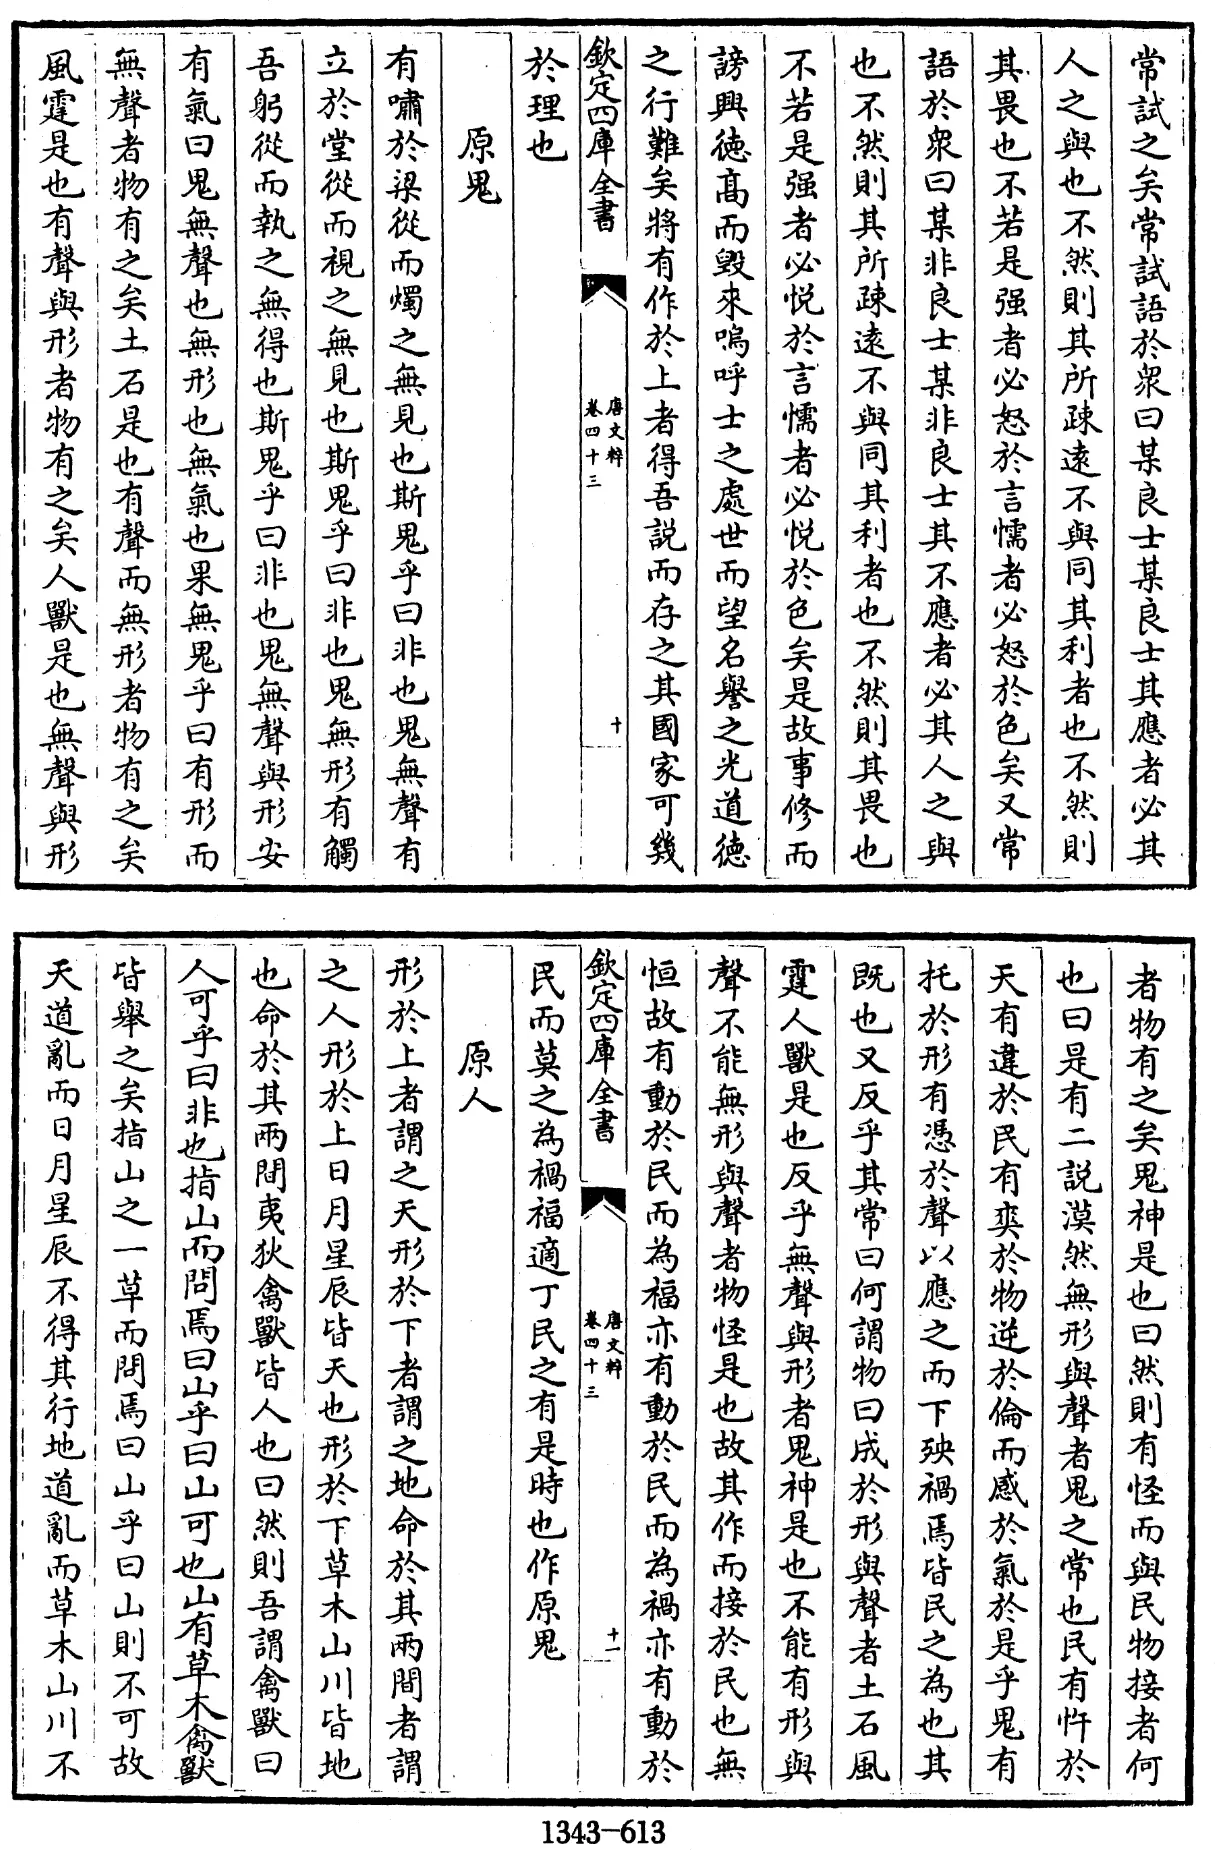 常試之矣常試語於衆曰某良士某良士其應者必其
人之與也不然則其所疎逺不與同其利者也不然則
其畏也不若是强者必怒於言懦者必怒於色矣又常
語於衆曰某非良士某非良士其不應者必其人之與
也不然則其所疎逺不與同其利者也不然則其畏也
不若是强者必悦於言懦者必悦於色矣是故事修而
謗興徳髙而毁來嗚呼士之處世而望名譽之光道徳
之行難矣將有作於上者得吾説而存之其國家可㡬
欽定四庫全書
唐文粹
卷四十三
十
於理也
原鬼
有嘯於梁從而燭之無見也斯鬼乎曰非也鬼無聲有
立於堂從而視之無見也斯鬼乎曰非也鬼無形有觸
吾躬從而執之無得也斯鬼乎曰非也鬼無聲與形安
有氣曰鬼無聲也無形也無氣也果無鬼乎曰有形而
無聲者物有之矣土石是也有聲而無形者物有之矣
風霆是也有聲與形者物有之矣人獸是也無聲與形
者物有之矣鬼神是也曰然則有怪而與民物接者何
也曰是有二説漠然無形與聲者鬼之常也民有忤於
天有違於民有爽於物逆於倫而感於氣於是乎鬼有
托於形有憑於聲以應之而下殃禍焉皆民之為也其
既也又反乎其常曰何謂物曰成於形與聲者土石風
霆人獸是也反乎無聲與形者鬼神是也不能有形與
聲不能無形與聲者物怪是也故其作而接於民也無
恒故有動於民而為福亦有動於民而為禍亦有動於
欽定四庫全書
唐文粹
卷四十三
十一
民而莫之為禍福適丁民之有是時也作原鬼
原人
形於上者謂之天形於下者謂之地命於其兩間者謂
之人形於上日月星辰皆天也形於下草木山川皆地
也命於其兩間夷狄禽獸皆人也曰然則吾謂禽獸曰
人可乎曰非也指山而問焉曰山乎曰山可也山有草木禽獸
皆舉之矣指山之一草而問焉曰山乎曰山則不可故
天道亂而日月星辰不得其行地道亂而草木山川不
1343-613